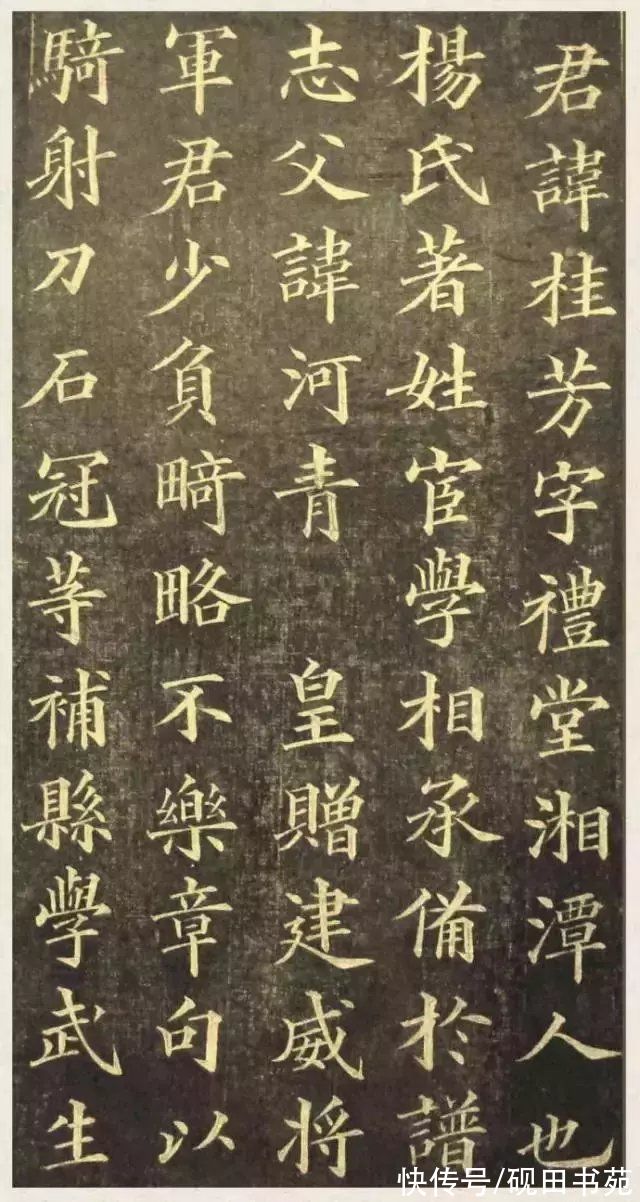 君諱桂芳字禮堂湘潭人也
楊氏著姓宦學相承備於譜
志父諱河青 皇贈建威将
軍君少負畸略不樂章句以
騎射刀石冠等補縣學武生
快传号/砚田书苑